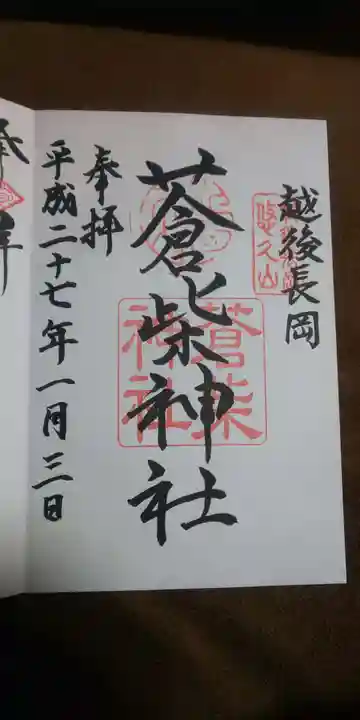 越後長岡
悠久山
蒼柴神社
蒼柴
神社
奉拝
平成二十七年一月三日
奉拝